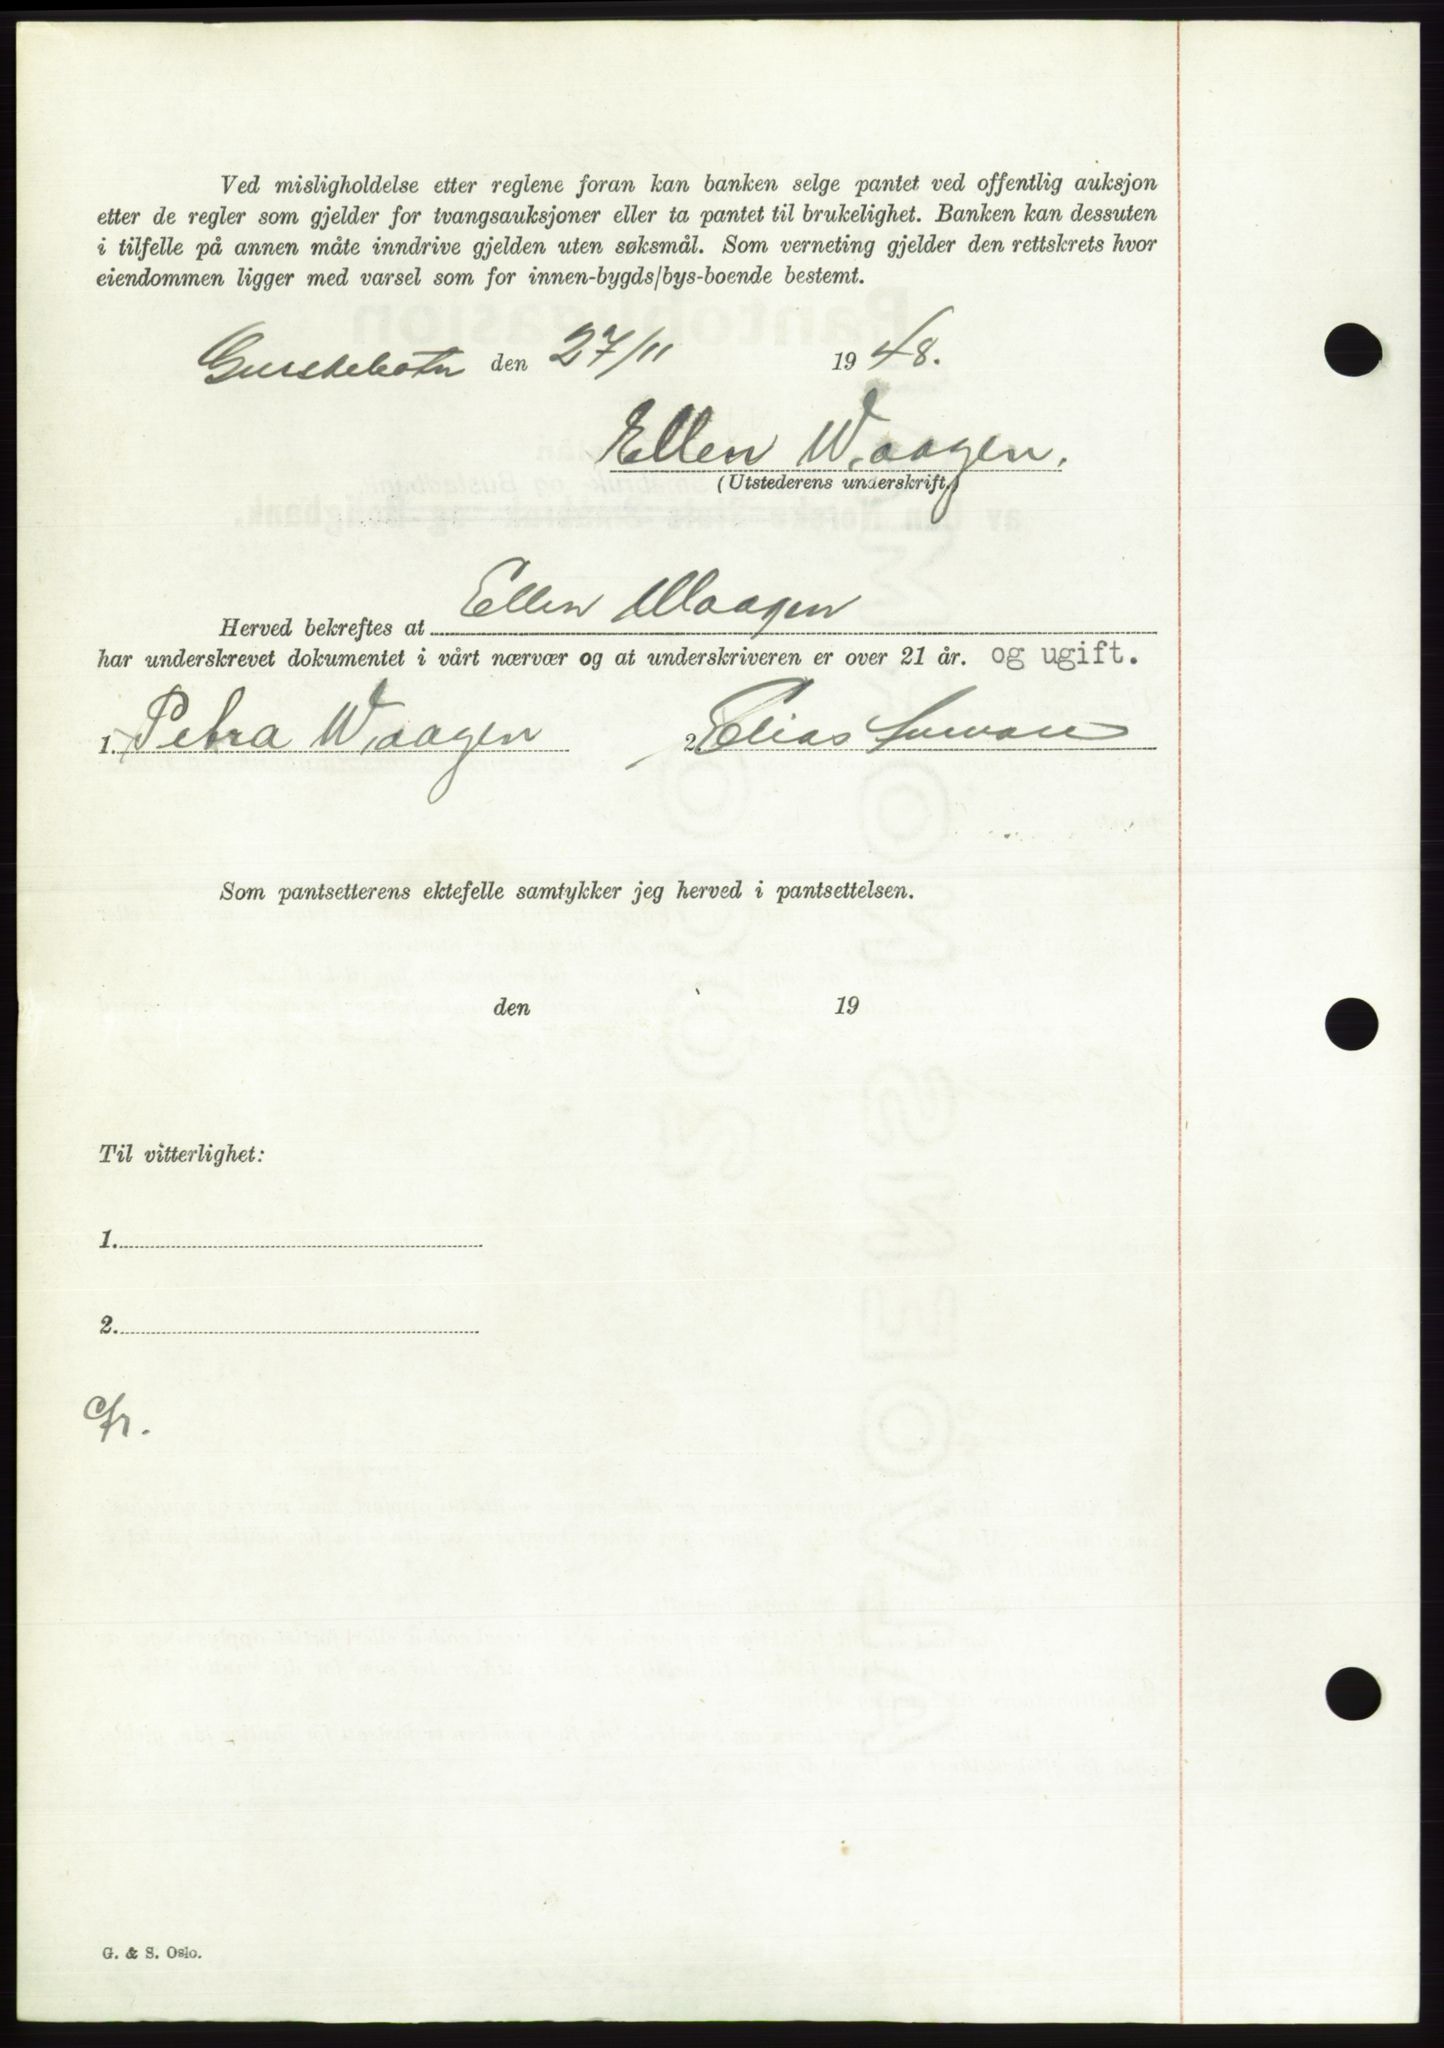 Ved misligholdelse etter reglene foran kan banken selge pantet ved offentlig auksjon
etter de regler som gjelder for tvangsauksjoner eller ta pantet til brukelighet. Banken kan dessuten
i tilfelle på annen måte inndrive gjelden uten søksmål. Som verneting gjelder den rettskrets hvor
eiendommen ligger med varsel som for innen-bygds/bys-boende bestemt.
Gurskebotn den 27/11 1948.
Ellen Waagen.
(Utstederens underskrift.)
Herved bekreftes at Ellen Waagen
har underskrevet dokumentet i vårt nærvær og at underskriveren er over 21 år. og ugift.
1. Petra Waagen 2. Elias
Som pantsetterens ektefelle samtykker jeg herved i pantsettelsen.
den 19
Til vitterlighet:
1.
2.
G. & S. Oslo.